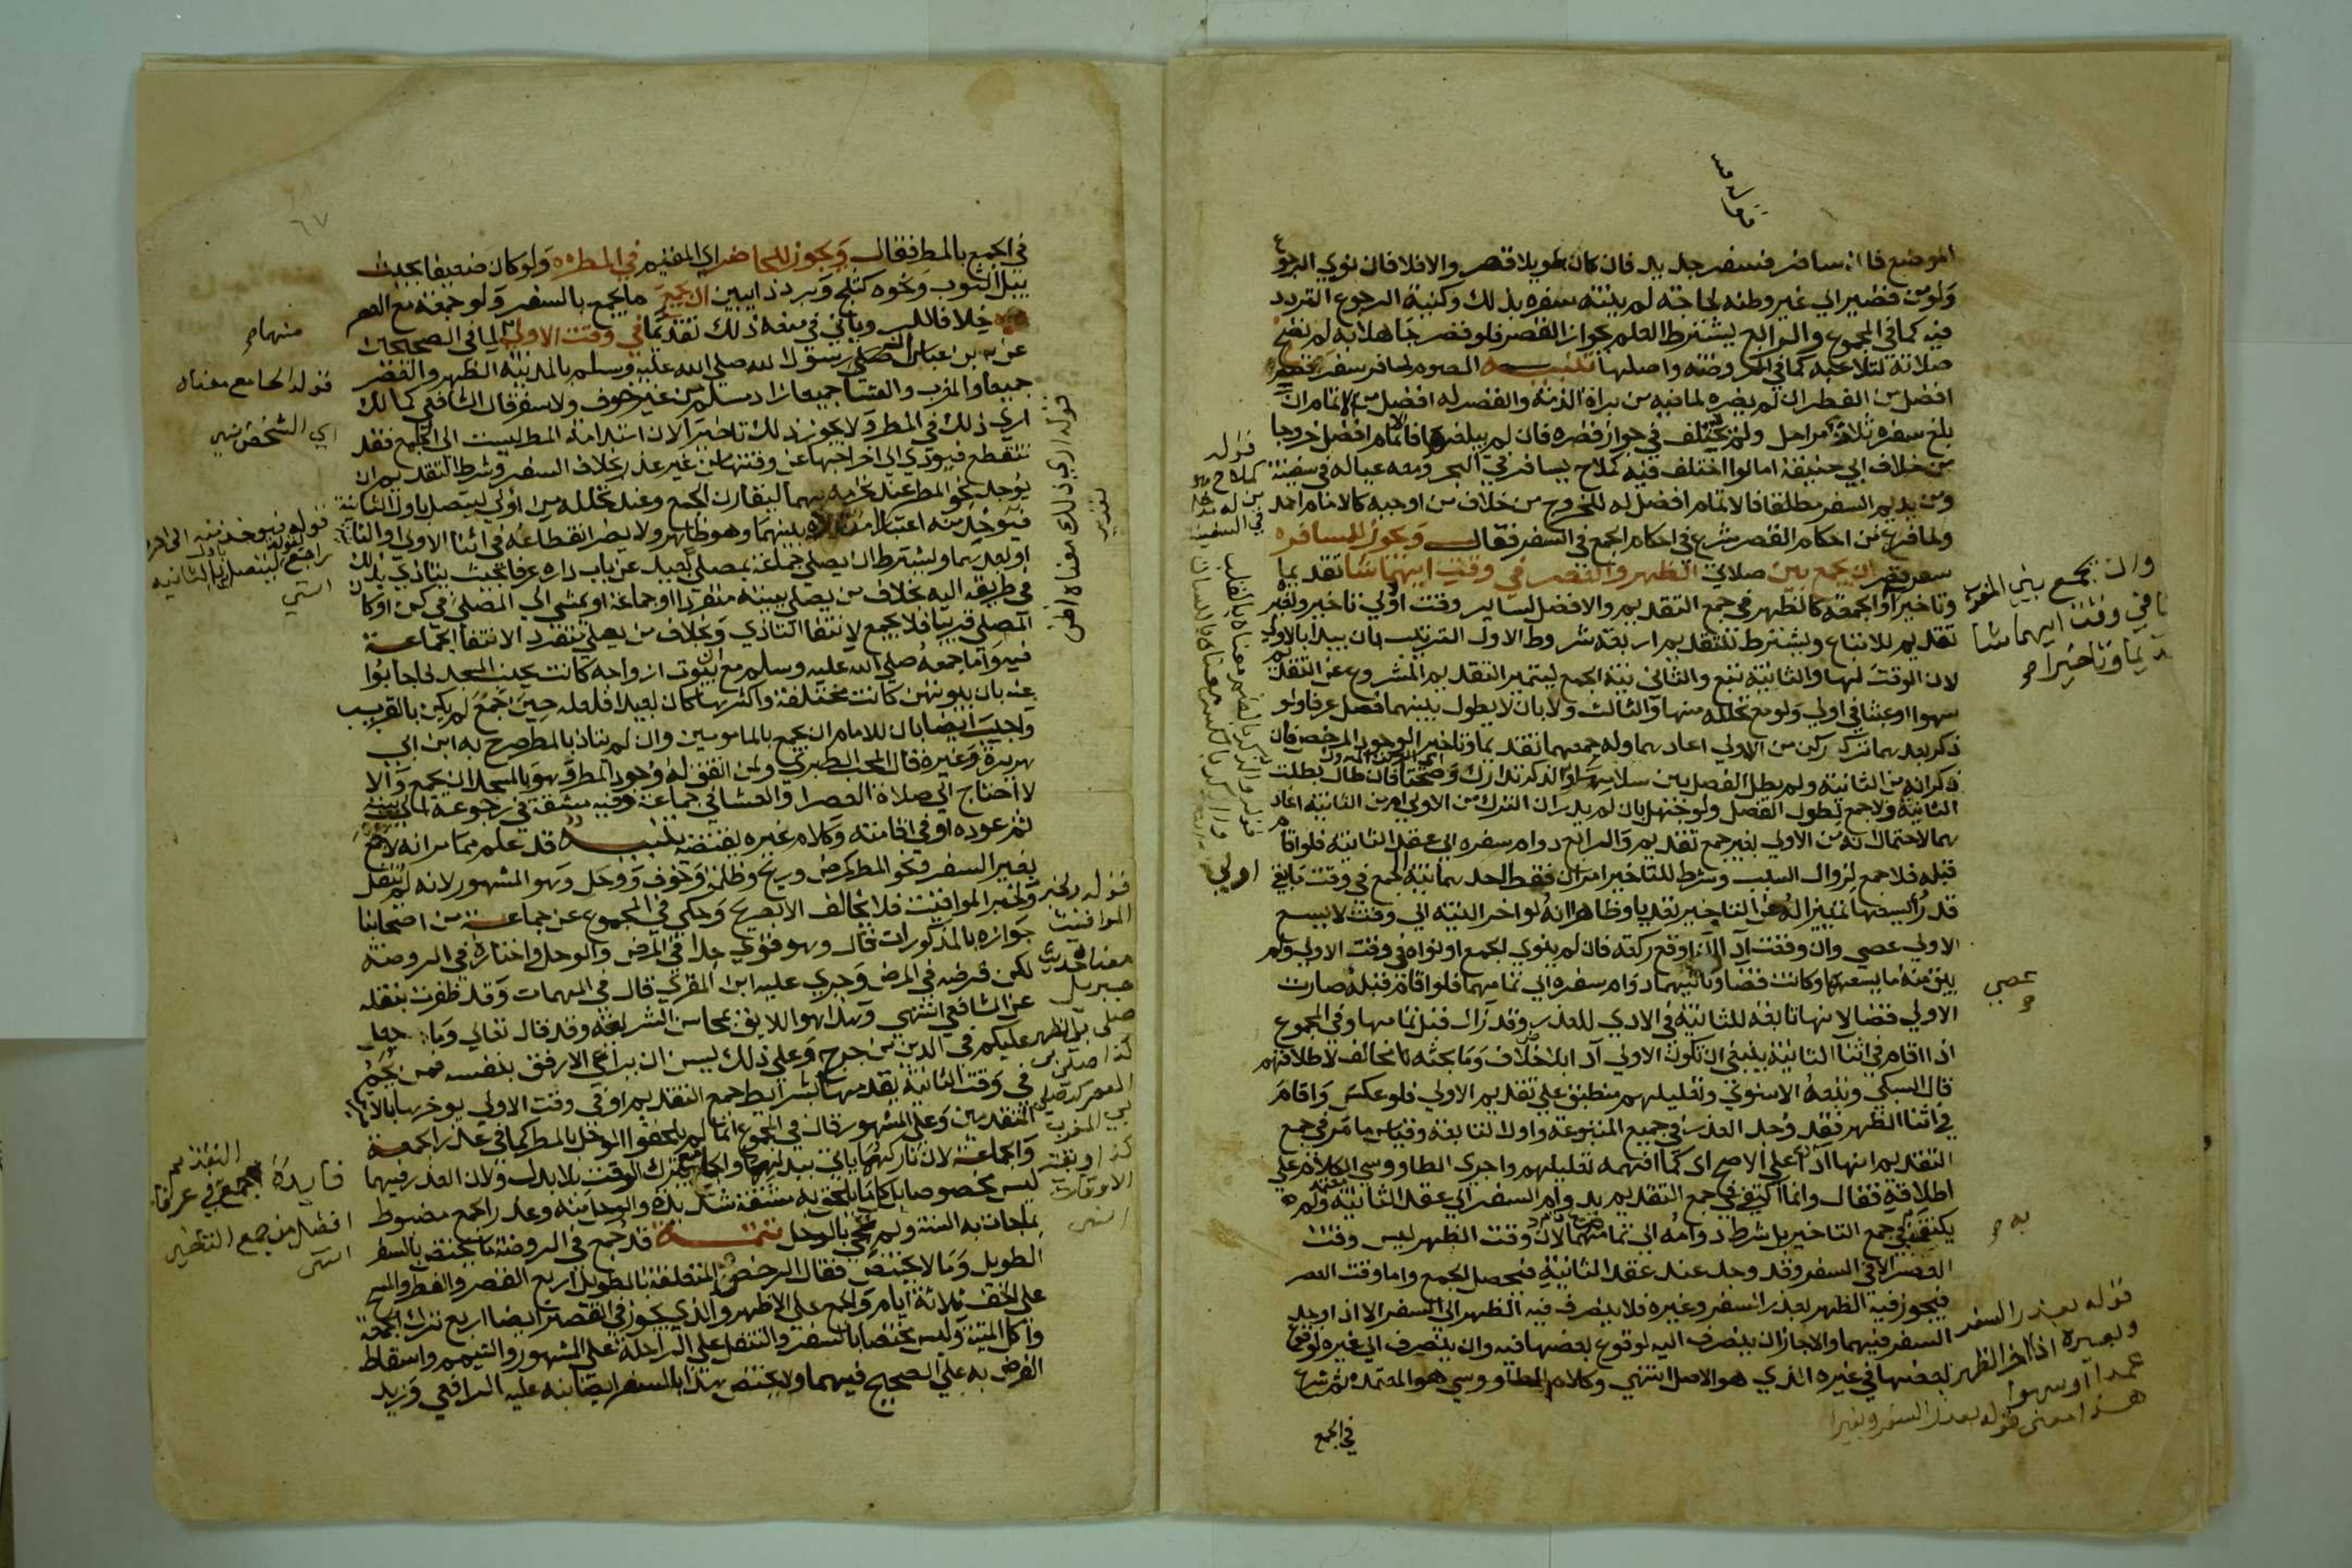 الموضع فان سافر فسفر جديد فان كان طويلا قصر والا فلا فان نوى الرجوع
ولو من قصير الي غير وطنه لحاجة لم ينته سفره بذلك وكنية الرجوع التردد
فيه كما في المجموع والرابع يشترط العلم بجواز القصر فلو قصر جاهلا به لم تصح
صلاته لتلاعبه كما في الروضة واصلها تنبيه الصوم لمسافر سفر قصر
افضل من الفطر ان لم يضره لما فيه من براة الذمة والقصر له افضل من الاتمام ان
بلغ سفره ثلاث مراحل ولم يختلف في جواز قصره فان لم يبلغها فالاتمام افضل خروجا
من خلاف ابي حنيفة اما لو اختلف فيه كملاح يسافر في البحر ومعه عياله في سفينة
ومن يديم السفر مطلقا فالاتمام افضل له للخروج من خلاف من اوجبه كالامام احمد
ولما فرغ من احكام القصر شرع في احكام الجمع في السفر فقال ويجوز للمسافر
سفر قصر ان يجمع بين صلاتي الظهر والعصر في وقت ايهما شا تقديما
وتاخيرا والجمعة كالظهر في جمع التقديم والافضل لساير وقت اولي تاخير ولغيره
تقديم للاتباع ويشترط للتقديم اربعة شروط الاول الترتيب بان يبدا بالاولي
لان الوقت لها والثانية تبع والثاني نية الجمع ليتميز التقديم المشروع عن التقديم
سهوا او عبثا في اولي ولو مع تحلله منها والثالث ولا بان لا يطول بينهما فصل عرفا ولو
ذكر بعدهما ترك ركن من الاولي اعادهما وله جمعهما تقديما وتاخيرا لوجود المرخص فان
ذكر انه من الثانية ولم يطل الفصل بين سلامها والذكر تدارك وصحتا فان طال بطلت
الثانية ولا جمع لطول الفصل ولو جهل بان لم يدر ان الترك من الاولي ام من الثانية اعاد
هما لاحتمال انه من الاولي بغير جمع تقديم والرابع دوام سفره الي عقد الثانية فلو اقام
قبله فلا جمع لزوال السبب وشرط للتاخير امران فقط احدهما نية الجمع في وقت ما بقي
قدر يسعها تمييزا له عن التاخير تعديا وظاهر انه لو اخر النية الي وقت لا يسع
الاولي عصي وان وقعت ادا اوقع ركعة فان لم ينوي الجمع او نواه في وقت الاولي ولم
يبق منه ما يسعها وكانت قضا وثانيهما دوام سفره الي تمامهما فلو اقام قبله صارت
الاولي قضا لانها تابعة للثانية في الادي للعذر وقد زال قبل تمامها وفي المجموع
اذا اقام في اثنا الثانية ينبغي ان تكون الاولي ادا بلا خلاف وما بحثه مخالف لاطلاقهم
قال السبكي وتبعه الاسنوي وتعليلهم منطبق علي تقديم الاولي فلو عكس واقام
في اثنا الظهر فقد وجد العذر في جميع المتبوعة واول التابعة وقياس ما مر في جمع
التقديم انها ادا علي الاصح اي كما افهمه تعليلهم واجري الطاووسي الكلام علي
اطلاقه فقال وانما اكتفي في جمع التقديم بدوام السفر الي عقد الثانية ولم
يكتف في جمع التاخير بل شرط دوامه الي تمامهما لان وقت الظهر ليس وقت
العصر الا في السفر وقد وجد عند عقد الثانية فيحصل الجمع واما وقت العصر
فيجوز فيه الظهر بعذر السفر وغيره فلا ينصرف فيه الظهر الي السفر الا اذا وجد
السفر فيهما والا جاز ان ينصرف اليه لوقوع بعضها فيه وان ينصرف الي غيره لوقوع
بعضها في غيره الذي هو الاصل انتهي وكلام الطاووسي هو المعتمد ثم شرع
في الجمع
قوله
كملاح هو
في السفينة
وان يجمع بين المغرب
في وقت ايهما شا
وتاخيرا صح
عصي
صح
به صح
قوله بعذر السفر
وغيره اذا اخر الظهر
عمدا او سهوا
هذا معني قوله بعذر السفر وغيره
٦٧
في الجمع بالمطر فقال ويجوز للحاضر اي المقيم في المطر ولو كان ضعيفا بحيث
يبل الثوب ونحوه كثلج وبرد ذايبين ان يجمع ما يجمع بالسفر ولو جمعة مع العصر
خلافا للـ ويأتي في منعه ذلك تقديما في وقت الاولي لما في الصحيحين
عن ابن عباس صلي رسول الله صلي الله عليه وسلم بالمدينة الظهر والعصر
جميعا والمغرب والعشا جميعا زاد مسلم من غير خوف ولا سفر قال الشافعي كمالك
اري ذلك في المطر ولا يجوز ذلك تاخيرا لان استدامة المطر ليست الي الجامع فقد
تنقطع فيودي الي اخراجها عن وقتها من غير عذر بخلاف السفر وشرط التقديم ان
يوجد نحو المطر عند تحرمه بهما ليقارن الجمع وعند تحلله من اولي ليتصل باول الثانية
فيؤخذ منه اعتبار امتداده بينهما وهو ظاهر ولا يضر انقطاعه في اثنا الاولي او الثانية
او بعدهما ويشترط ان يصلي جماعة بمصلي بعيد عن باب داره عرفا بحيث يتاذي بذلك
في طريقه اليه بخلاف من يصلي ببيته منفردا او جماعة او يمشي الي المصلي في كن او كان
المصلي قريبا فلا يجمع لانتفا التاذي وبخلاف من يصلي منفردا لانتفا الجماعة
فيه واما جمعه صلي الله عليه وسلم مع ان بيوت ازواجه كانت بجنب المسجد فاجابوا
عنه بان بيوتهن كانت مختلفة واكثرها كان بعيدا فلعله حين جمع لم يكن بالقريب
واجيب ايضا بان للامام ان يجمع بالمامومين وان لم يتاذ بالمطر صرح به ابن ابي
هريرة وغيره قال المحب الطبري ولمن اتفق له وجود المطر وهو بالمسجد ان يجمع والا
لاحتاج الي صلاة العصر او العشا في جماعة وفيه مشقة في رجوعه الي بيته
ثم عوده او في اقامته وكلام غيره يقتضيه تنبيه قد علم مما مر انه لا جمع
بغير السفر ونحو المطر كمرض وريح وظلمة وخوف ووحل وهو المشهور لانه لم ينقل
ولخبر المواقيت فلا يخالف الا بصريح وحكي في المجموع عن جماعة من اصحابنا
جوازه بالمذكورات قال وهو قوي جدا في المرض والوحل واختاره في الروضة
لكن فرضه في المرض وجري عليه ابن المقري قال في المهمات وقد ظفرت بنقله
عن الشافعي انتهي وهذا هو اللايق بمحاسن الشريعة وقد قال تعالي وما جعل
عليكم في الدين من حرج وعلي ذلك يسن ان يراعي الارفق بنفسه فمن يحم
في وقت الثانية يقدمها بشرايط جمع التقديم او في وقت الاولي يوخرها بالامرين
المتقدمين وعلي المشهور قال في المجموع انما لم يلحقوا الوحل بالمطر كما في عذر الجمعة
والجماعة لان تاركهما ياتي ببدلهما والجامع يترك الوقت بلا بدل ولان العذر فيهما
ليس مخصوصا بل كل ما يلحق به مشقة شديدة والوحل منه وعذر الجمع مضبوط
بما جات به السنة ولم تجئ بالوحل تتمة قد جمع في الروضة ما يختص بالسفر
الطويل وما لا يختص فقال الرخص المتعلقة بالطويل اربع القصر والفطر والمسح
علي الخف ثلاثة ايام والجمع علي الاظهر والذي يجوز في القصير ايضا اربع ترك الجمعة
واكل الميتة وليس مختصا بالسفر والتنفل علي الراحلة علي المشهور والتيمم واسقاط
الفرض به علي الصحيح فيهما ولا يختص هذا بالسفر ايضا نبه عليه الرافعي وزيد
منهما صح
قوله الجامع معناه
اي الشخص انتهي
قوله فيوخذ منه الي اخره
راجع لقوله ليتصل باول الثانية
انتهي
قوله اري ذلك معناه اظن
قوله ولخبر
المواقيت
معناه حديث
جبريل
صلي بي الظهر
كذا صلي بي
العصر كذا صلي
بي المغرب
كذا وبقية
الاوقات
انتهي
فايدة جمع التقديم في عرفة
افضل من جمع التاخير
انتهي